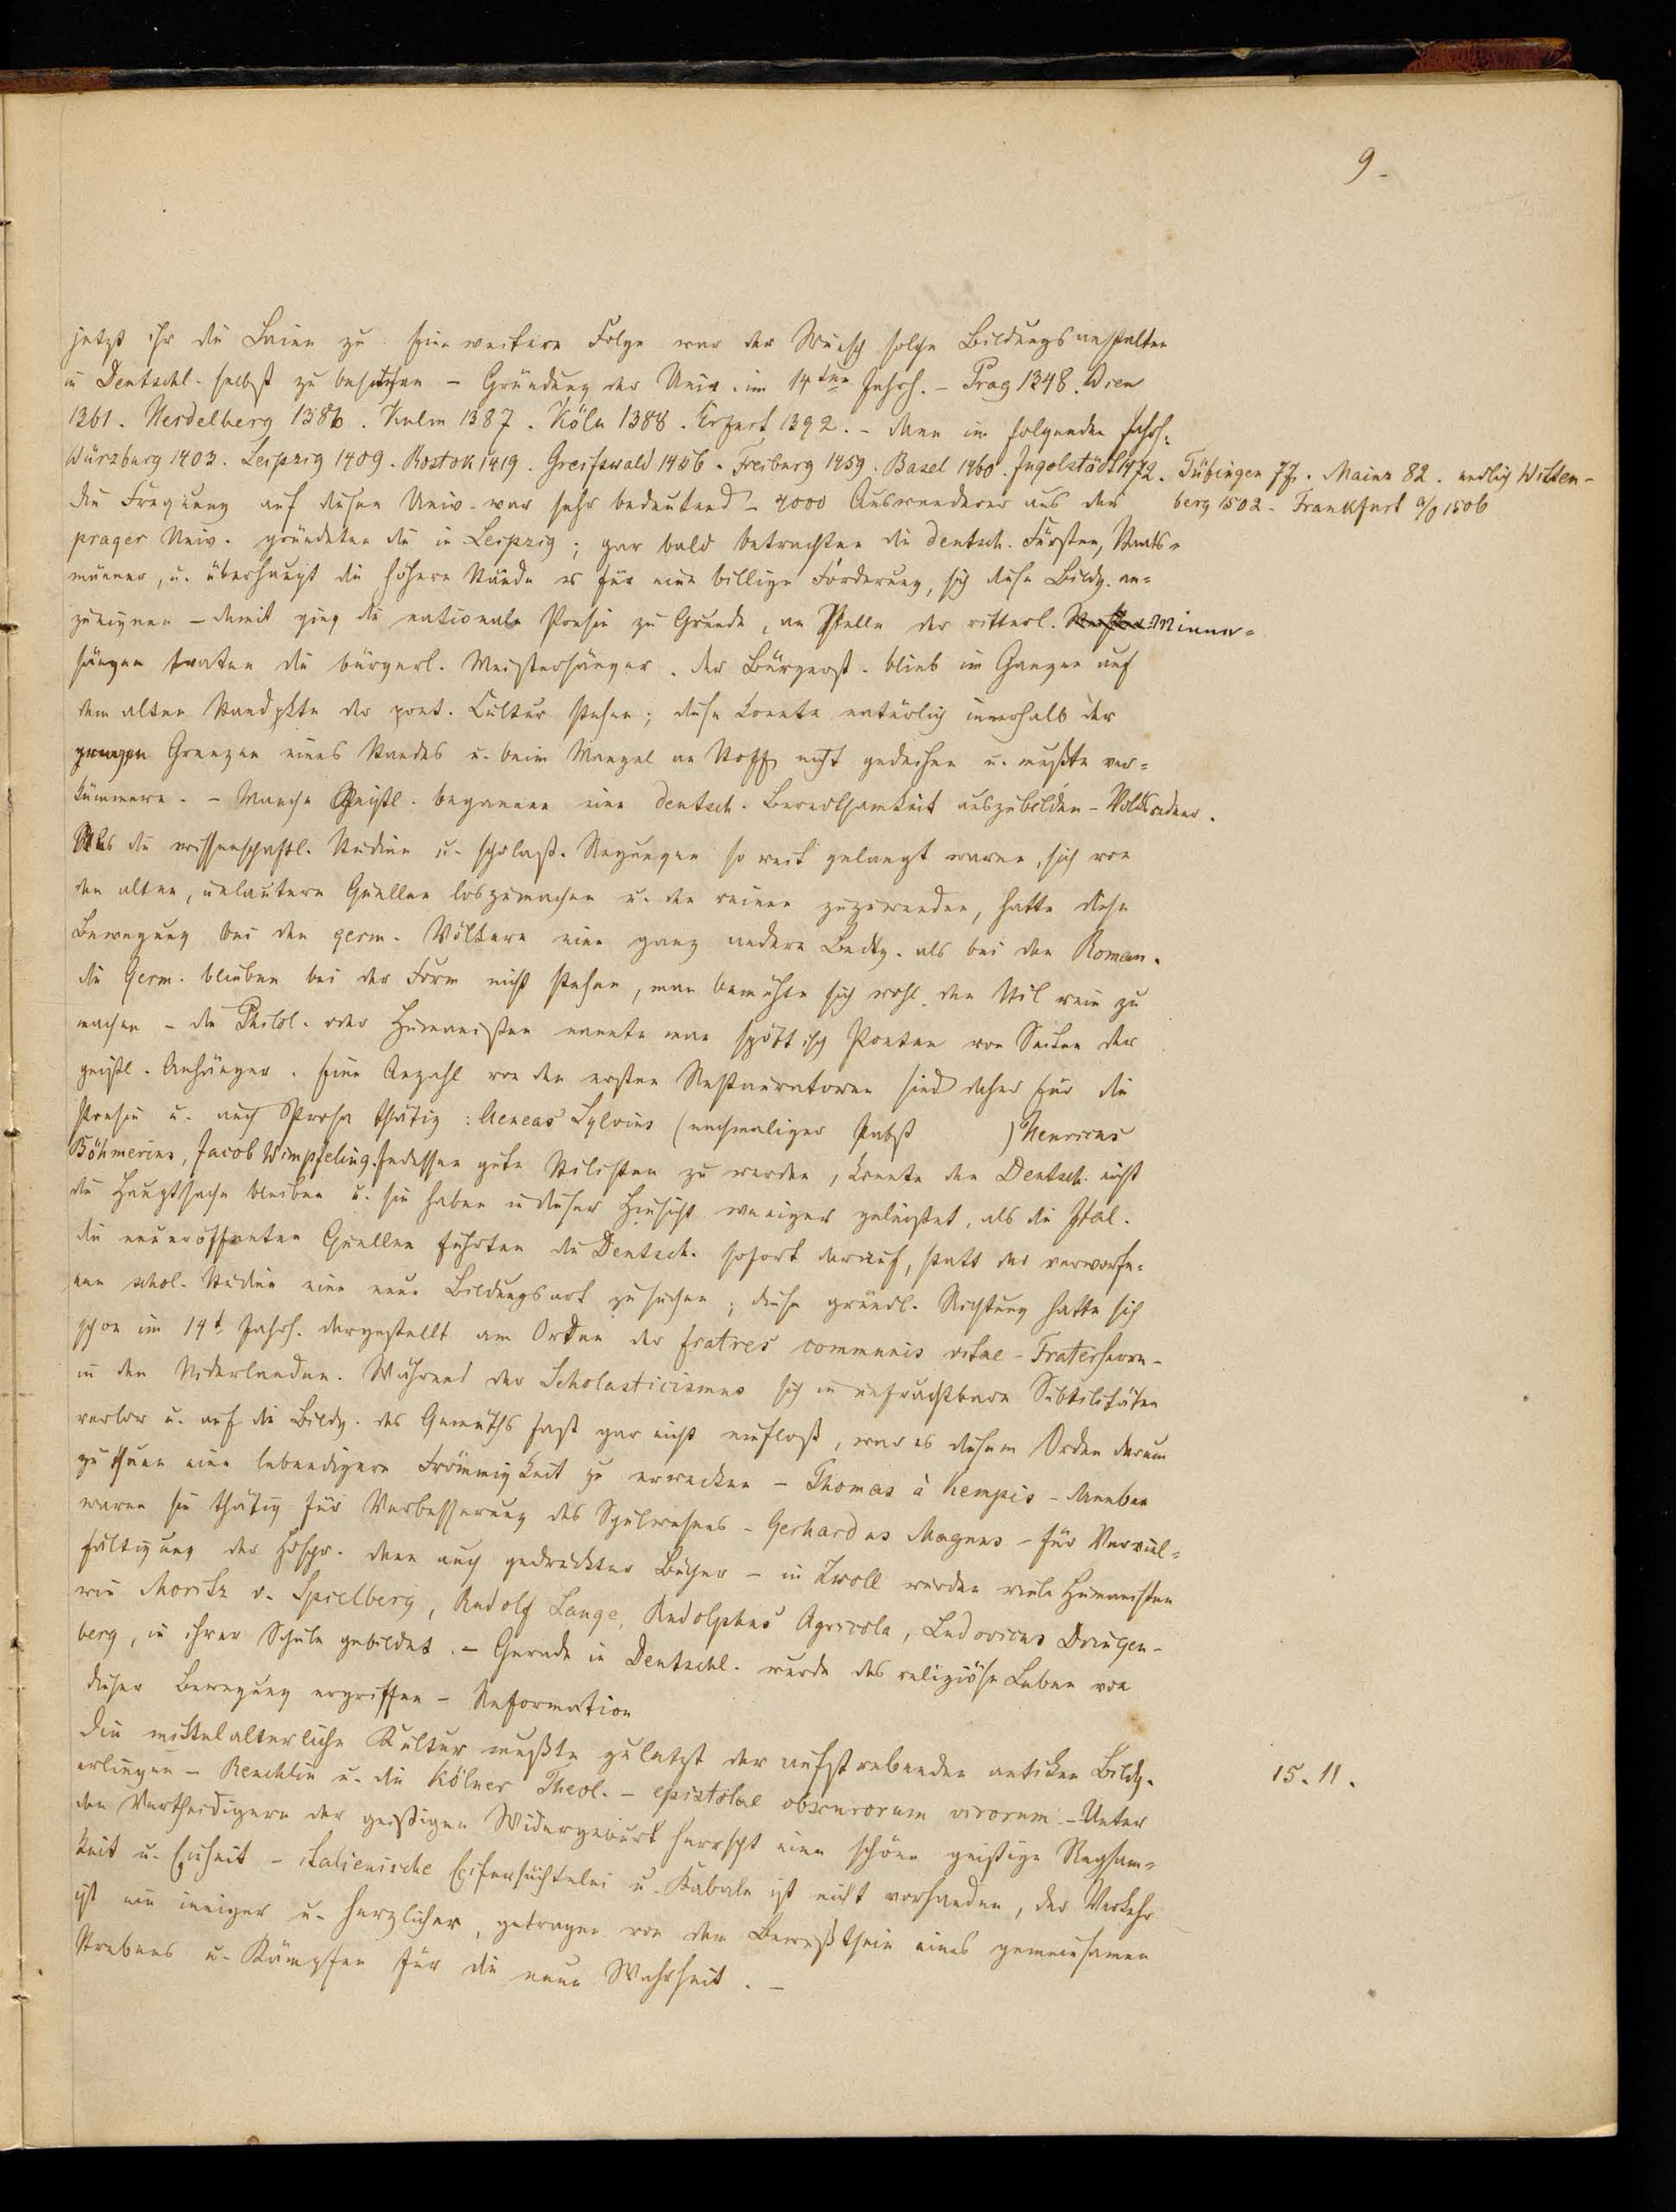 9.
jetzt ihr die Laien zu. Eine weitere Folge war der Wunsch solche Bildungsanstalten
in Deutschl. selbst zu besitzen – Gründung der Univ. im 14ten Jahrh. – Prag 1348. Wien
1361. Heidelberg 1386. Kulm 1387. Köln 1388. Erfurt 1392. – dann im folgenden Jahrh.
Würzburg 1403. Leipzig 1409. Rostok 1419. Greifswald 1456. Freiburg 1459. Basel 1460. Ingolstadt 1472. Tübingen 77. Mainz 82. endlich Witten-
berg 1502. Frankfurt a/O 1506
die Frequenz auf diesen Univ. war sehr bedeutend – 4000 Auswanderer aus der
prager Univ. gründeten die in Leipzig; gar bald betrachten die deutsch. Fürsten, Staats-
männer, u. überhaupt die höhern Stände es für eine billige Forderung, sich diese Bildg. an=
zueignen – damit ging die nationale Poesie zu Grunde, an Stelle der ritterl. Minne=
sänger traten die bürgerl. Meistersänger. der Bürgerst. blieb im Ganzen auf
dem alten Standpkte der poet. Cultur stehen; diese konnte natürlich innerhalb der
engen Grenzen eines Standes u. beim Mangel an Stoff nicht gedeihen u. mußte ver=
kümmern. – Manche Geistl. begannen eine deutsch. Beredtsamkeit auszubilden – Volksredner.
Als die wissenschaftl. Studien u. scholast. Regungen so weit gelangt waren, sich von
den alten, unlautern Quellen loszumachen u. den reinen zuzuwenden, hatte diese
Bewegung bei den germ. Völkern eine ganz andere Bedtg. als bei den Roman.
die Germ. blieben bei der Form nicht stehen, man bemühte sich wohl den Stil rein zu
machen – die Philol. oder Humanisten nannte man spöttisch Poeten von Seiten der
geistl. Anhänger. Eine Anzahl von den ersten Restauratoren sind daher für die
Poesie u. auch Prosa thätig: Aeneas Sylvius (nachmaliger Pabst ) Henricus
Böhmerius, Jacob Wimpfeling. Indessen gute Stilisten zu werden, konnte den Deutsch. nicht
die Hauptsache bleiben u. sie haben in dieser Hinsicht weniger geleistet, als die Ital.
die neueröffneten Quellen führten die Deutsch. sofort darauf, statt der verworfe=
nen schol. Studien eine neue Bildungsart zu suchen; diese gründl. Richtung hatte sich
schon im 14t. Jahrh. dargestellt am Orden der fratres communis vitae – Fraterherrn –
in den Niderlanden. Während der Scholasticismus sich in unfruchtbare Subtilitäten
verlor u. auf die Bildg. des Gemüths fast gar nicht einfloß, war es diesem Orden darum
zu thuen eine lebendigere Frömmigkeit zu erwecken – Thomas à Kempis – daneben
waren sie thätig für Verbesserung des Schulwesens – Gerhardus Magnus – für Verviel=
fältigung der Hdschr. dann auch gedruckter Bücher – in Zwoll wurden viele Humanisten
wie Moritz v. Spielberg, Rudolf Lange, Rudolphus Agricola, Ludovicus Dringen-
berg, in ihrer Schule gebildet. – Gerade in Deutschl. wurde das religiöse Leben von
dieser Bewegung ergriffen – Reformation
Die mittelalterliche Kultur mußte zuletzt der aufstrebenden antiken Bildg. 15.11.
erliegen – Reuchlin u. die Kölner Theol. – epistolae obscurorum virorum. – Unter
den Vertheidigern der geistigen Widergeburt herrscht eine schöne geistige Regsam=
keit u. Einheit – italienische Eifersüchtelei u. Kabale ist nicht vorhanden, der Verkehr
ist ein inniger u. herzlicher, getragen von dem Bewußtsein eines gemeinsamen
Strebens u. Kämpfen für die neue Wahrheit. –